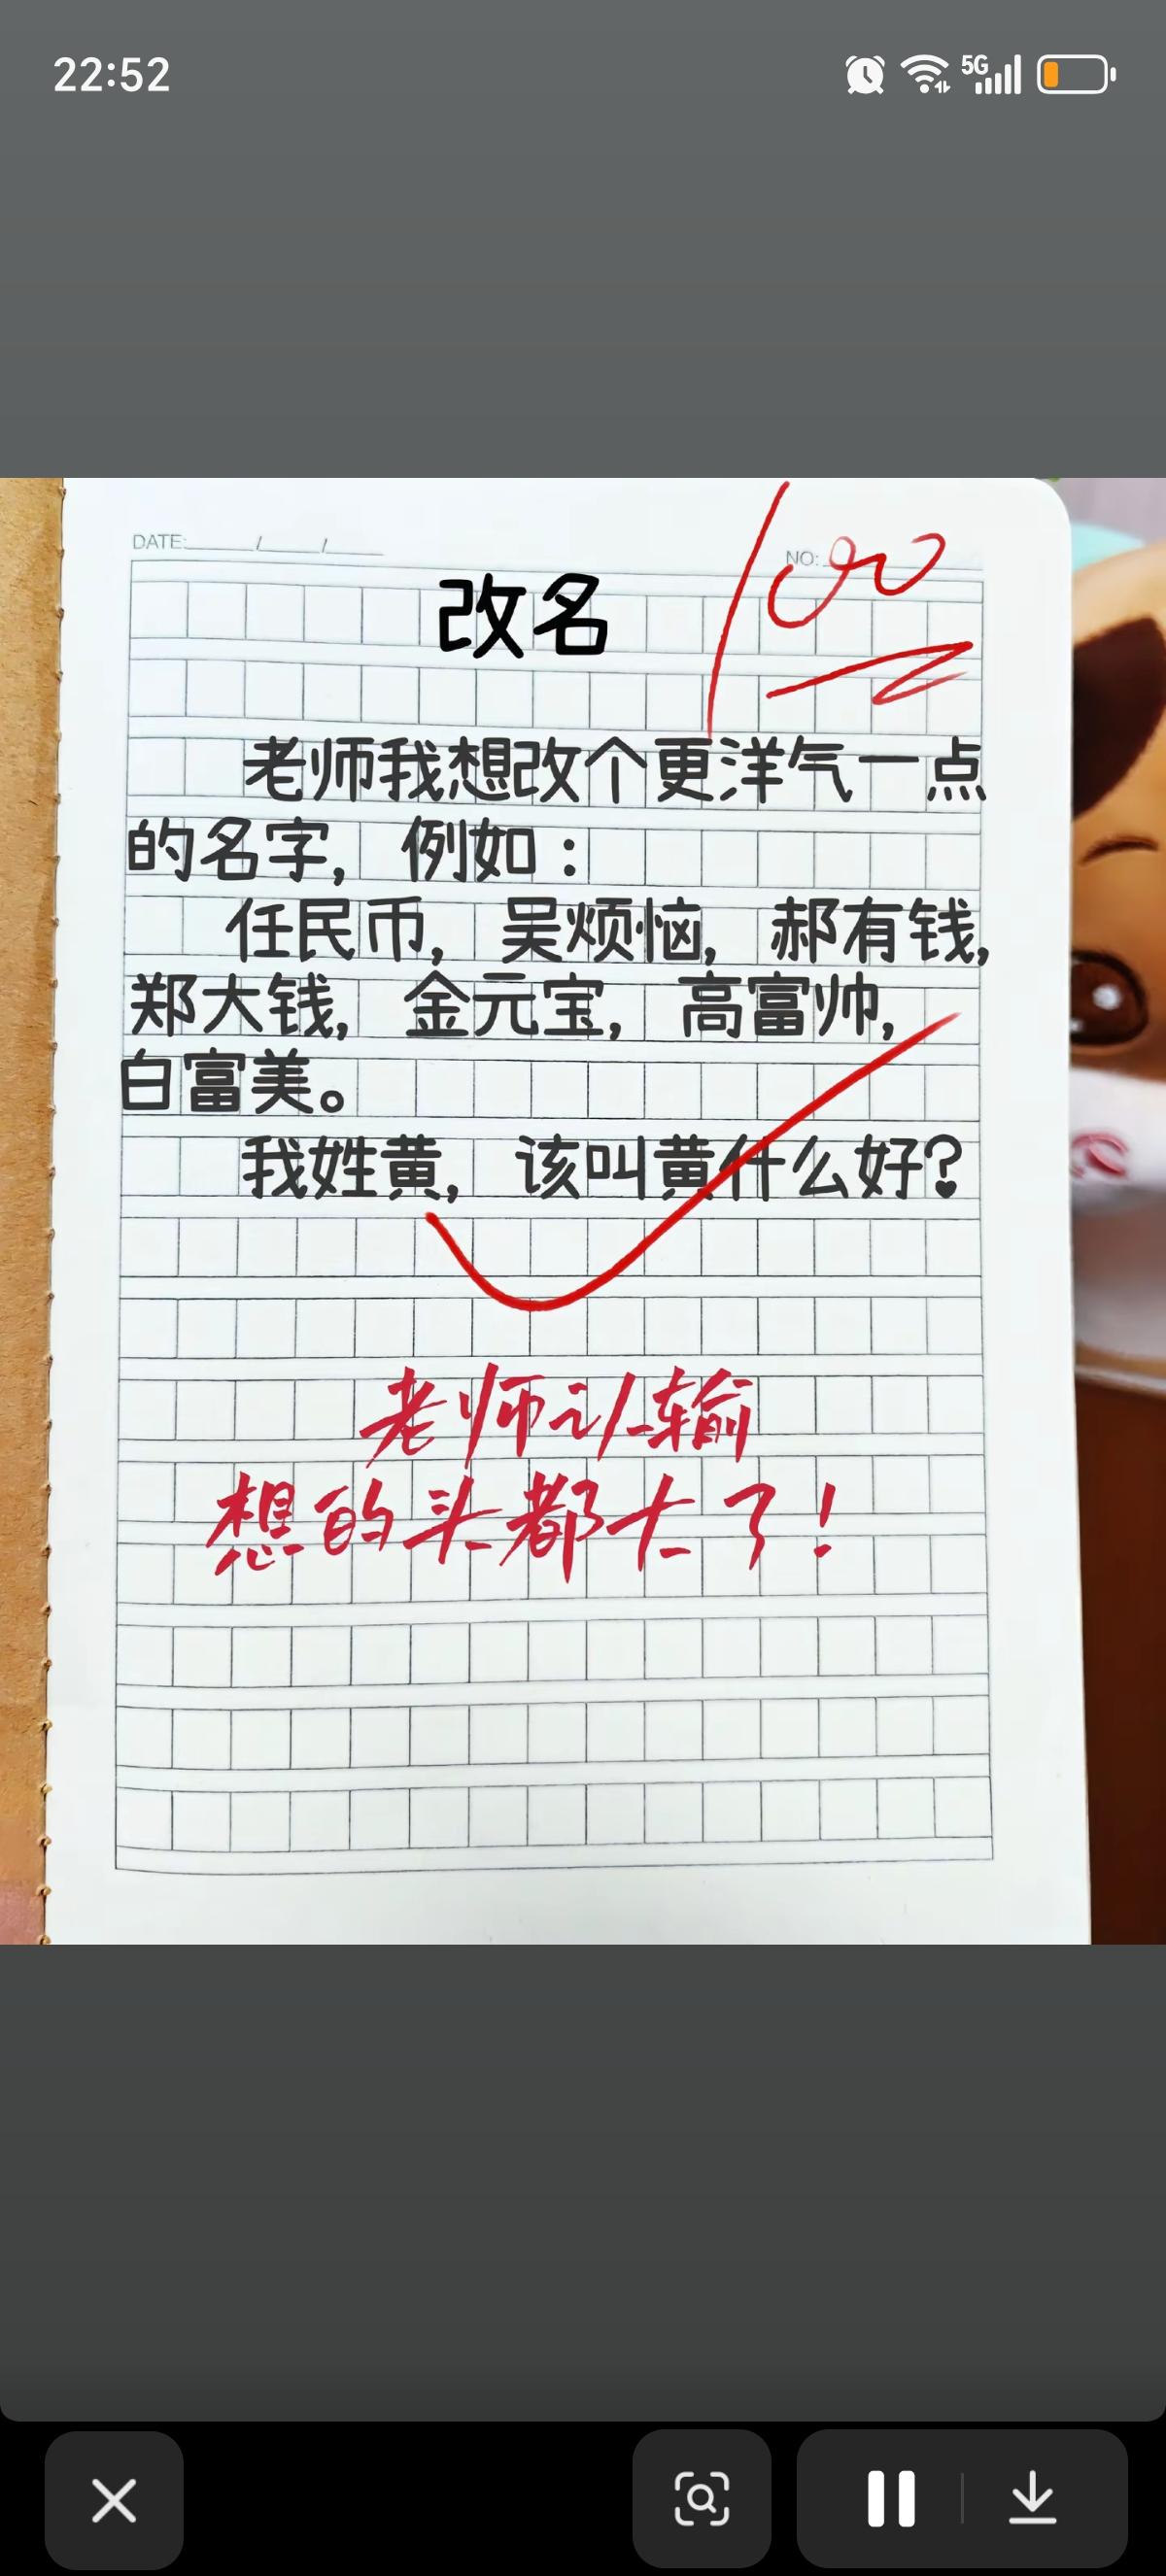 22:52
5G
DATE: / /
NO:
100
改名
老师我想改个更洋气一点
的名字，例如：
任民币，吴烦恼，郝有钱，
郑大钱，金元宝，高富帅，
白富美。
我姓黄，该叫黄什么好？
老师认输
想的头都大了！